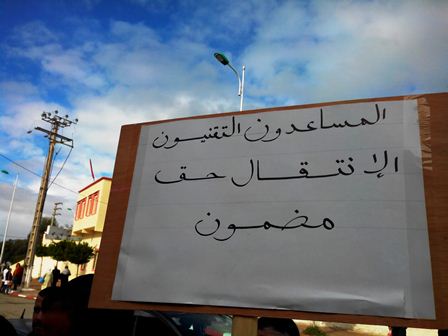 المساعدون التقنيون
الإنتقال حق
مضمون